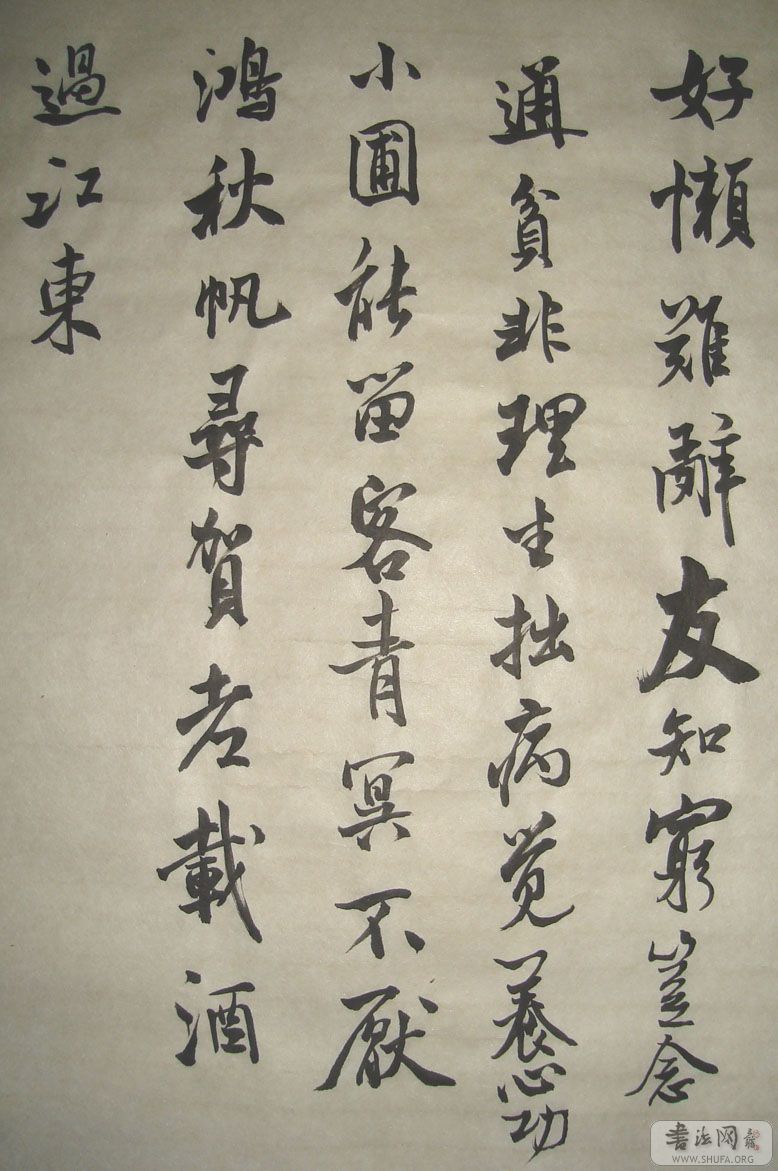 好懶難辭友知窮豈念
通貧非理生拙病覓養心功
小圃能留客青冥不厭
鴻秋帆尋賀老載酒
過江東
書法网
WWW.SHUFA.ORG